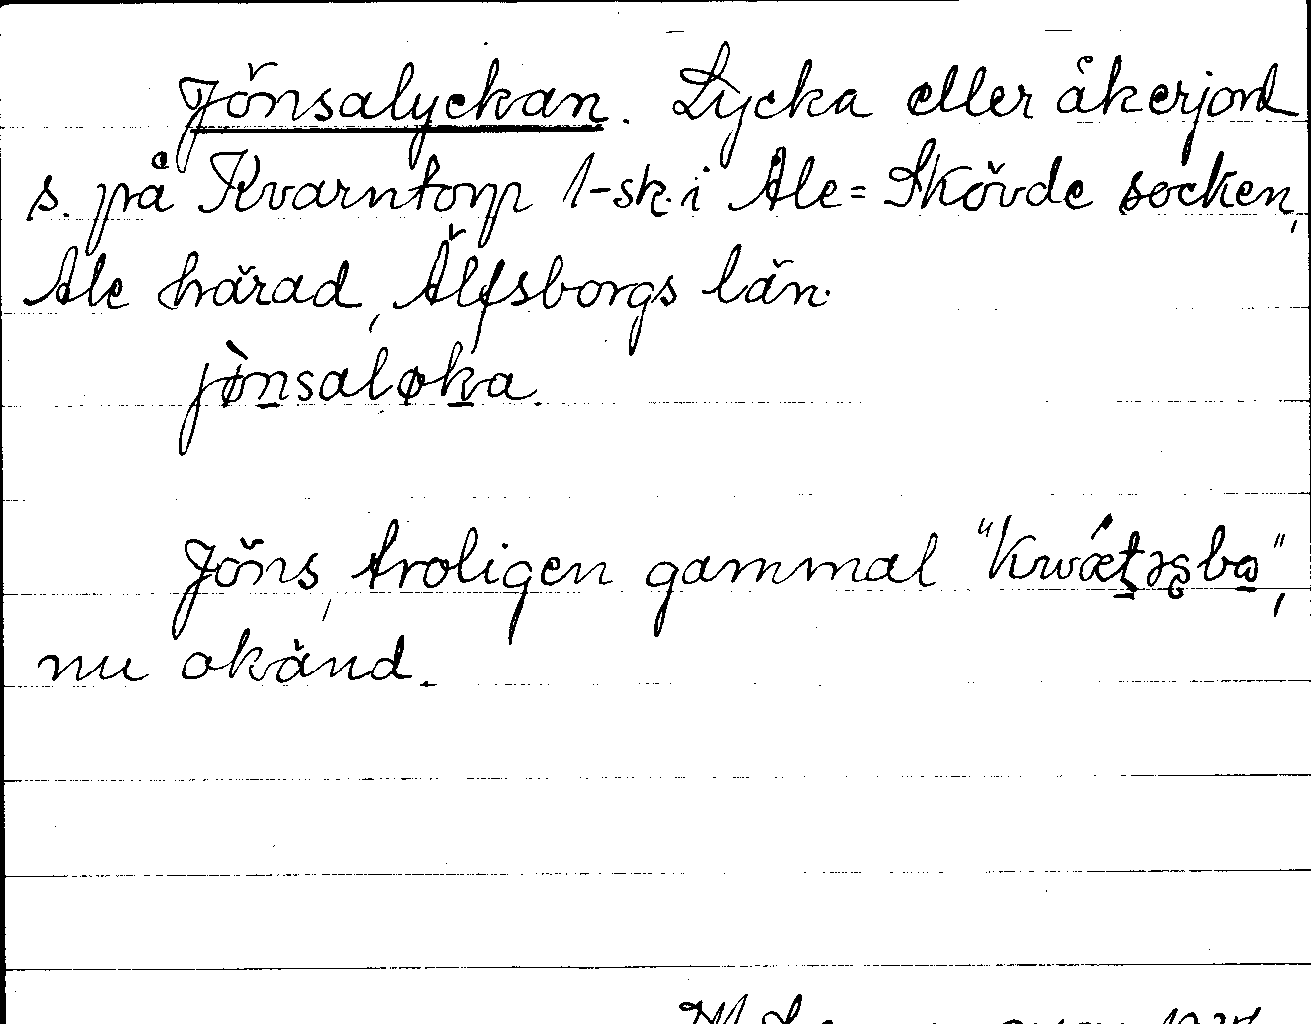 Jönsalyckan. Lycka eller åkerjord
s. på Kvarntorp 1-sk. i Ale=Skövde socken,
Ale härad, Älfsborgs län.
jø̀nsaløka.
Jöns, troligen gammal "Kwǽtəʂbɷ",
nu okänd.